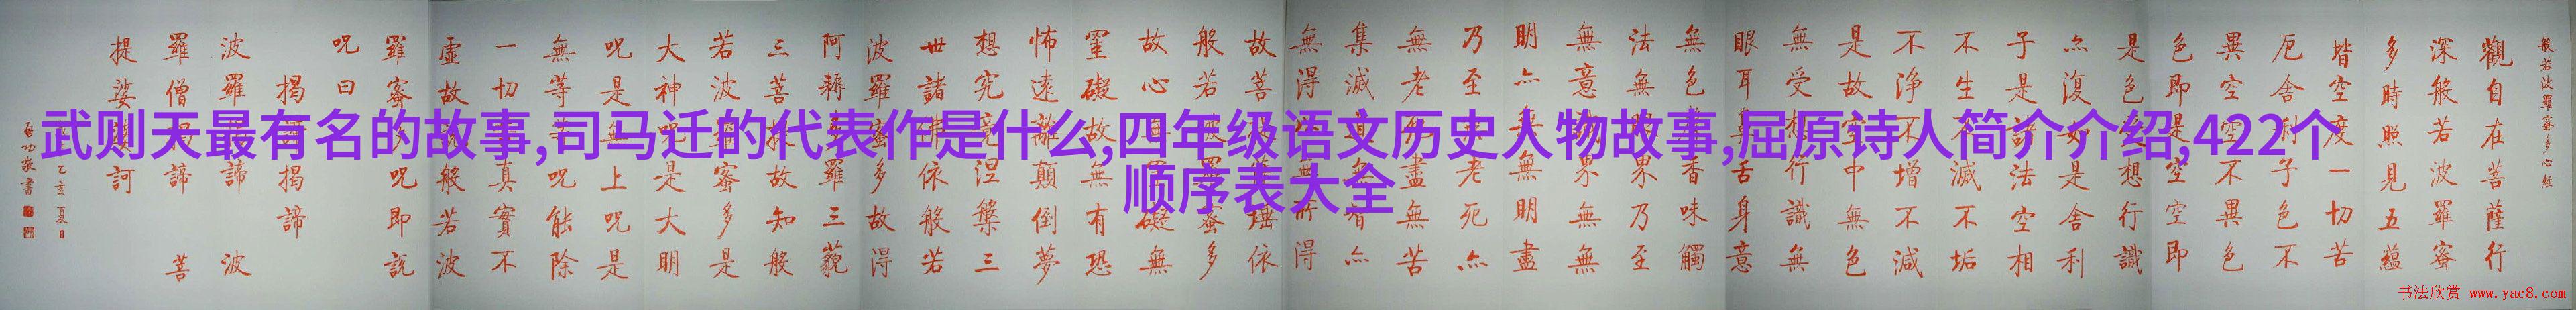 武则天最有名的故事,司马迁的代表作是什么,四年级语文历史人物故事,屈原诗人简介介绍,422个
顺序表大全
般若波羅蜜多心經
觀自在菩薩行
深般若波羅蜜
多時照見五蘊
皆空度一切苦
厄舍利子色不
異空空不異色
色即是空空即
是色受想行識
亦復如是舍利
子是諸法空相
不生不滅不垢
不淨不增不減
是故空中無色
無受想行識無
眼耳鼻舌身意
無色聲香味觸
法無眼界乃至
無意識界無無
明亦無無明盡
乃至無老死亦
無老死盡無苦
集滅道無智亦
無得以無所得
故菩提薩埵依
般若波羅蜜多
故心無罣礙無
罣礙故無有恐
怖遠離顛倒夢
想究竟涅槃三
世諸佛依般若
波羅蜜多故得
阿耨多羅三藐
三菩提故知般
若波羅蜜多是
大神呪是大明
呪是無上呪是
無等等呪能除
一切苦真實不
虛故說般若波
羅蜜多呪即說
呪曰
揭諦揭諦
波羅揭諦 波
羅僧揭諦 菩
提娑婆訶
乙亥夏日
啓功敬書
书法欣赏 www.yac8.com